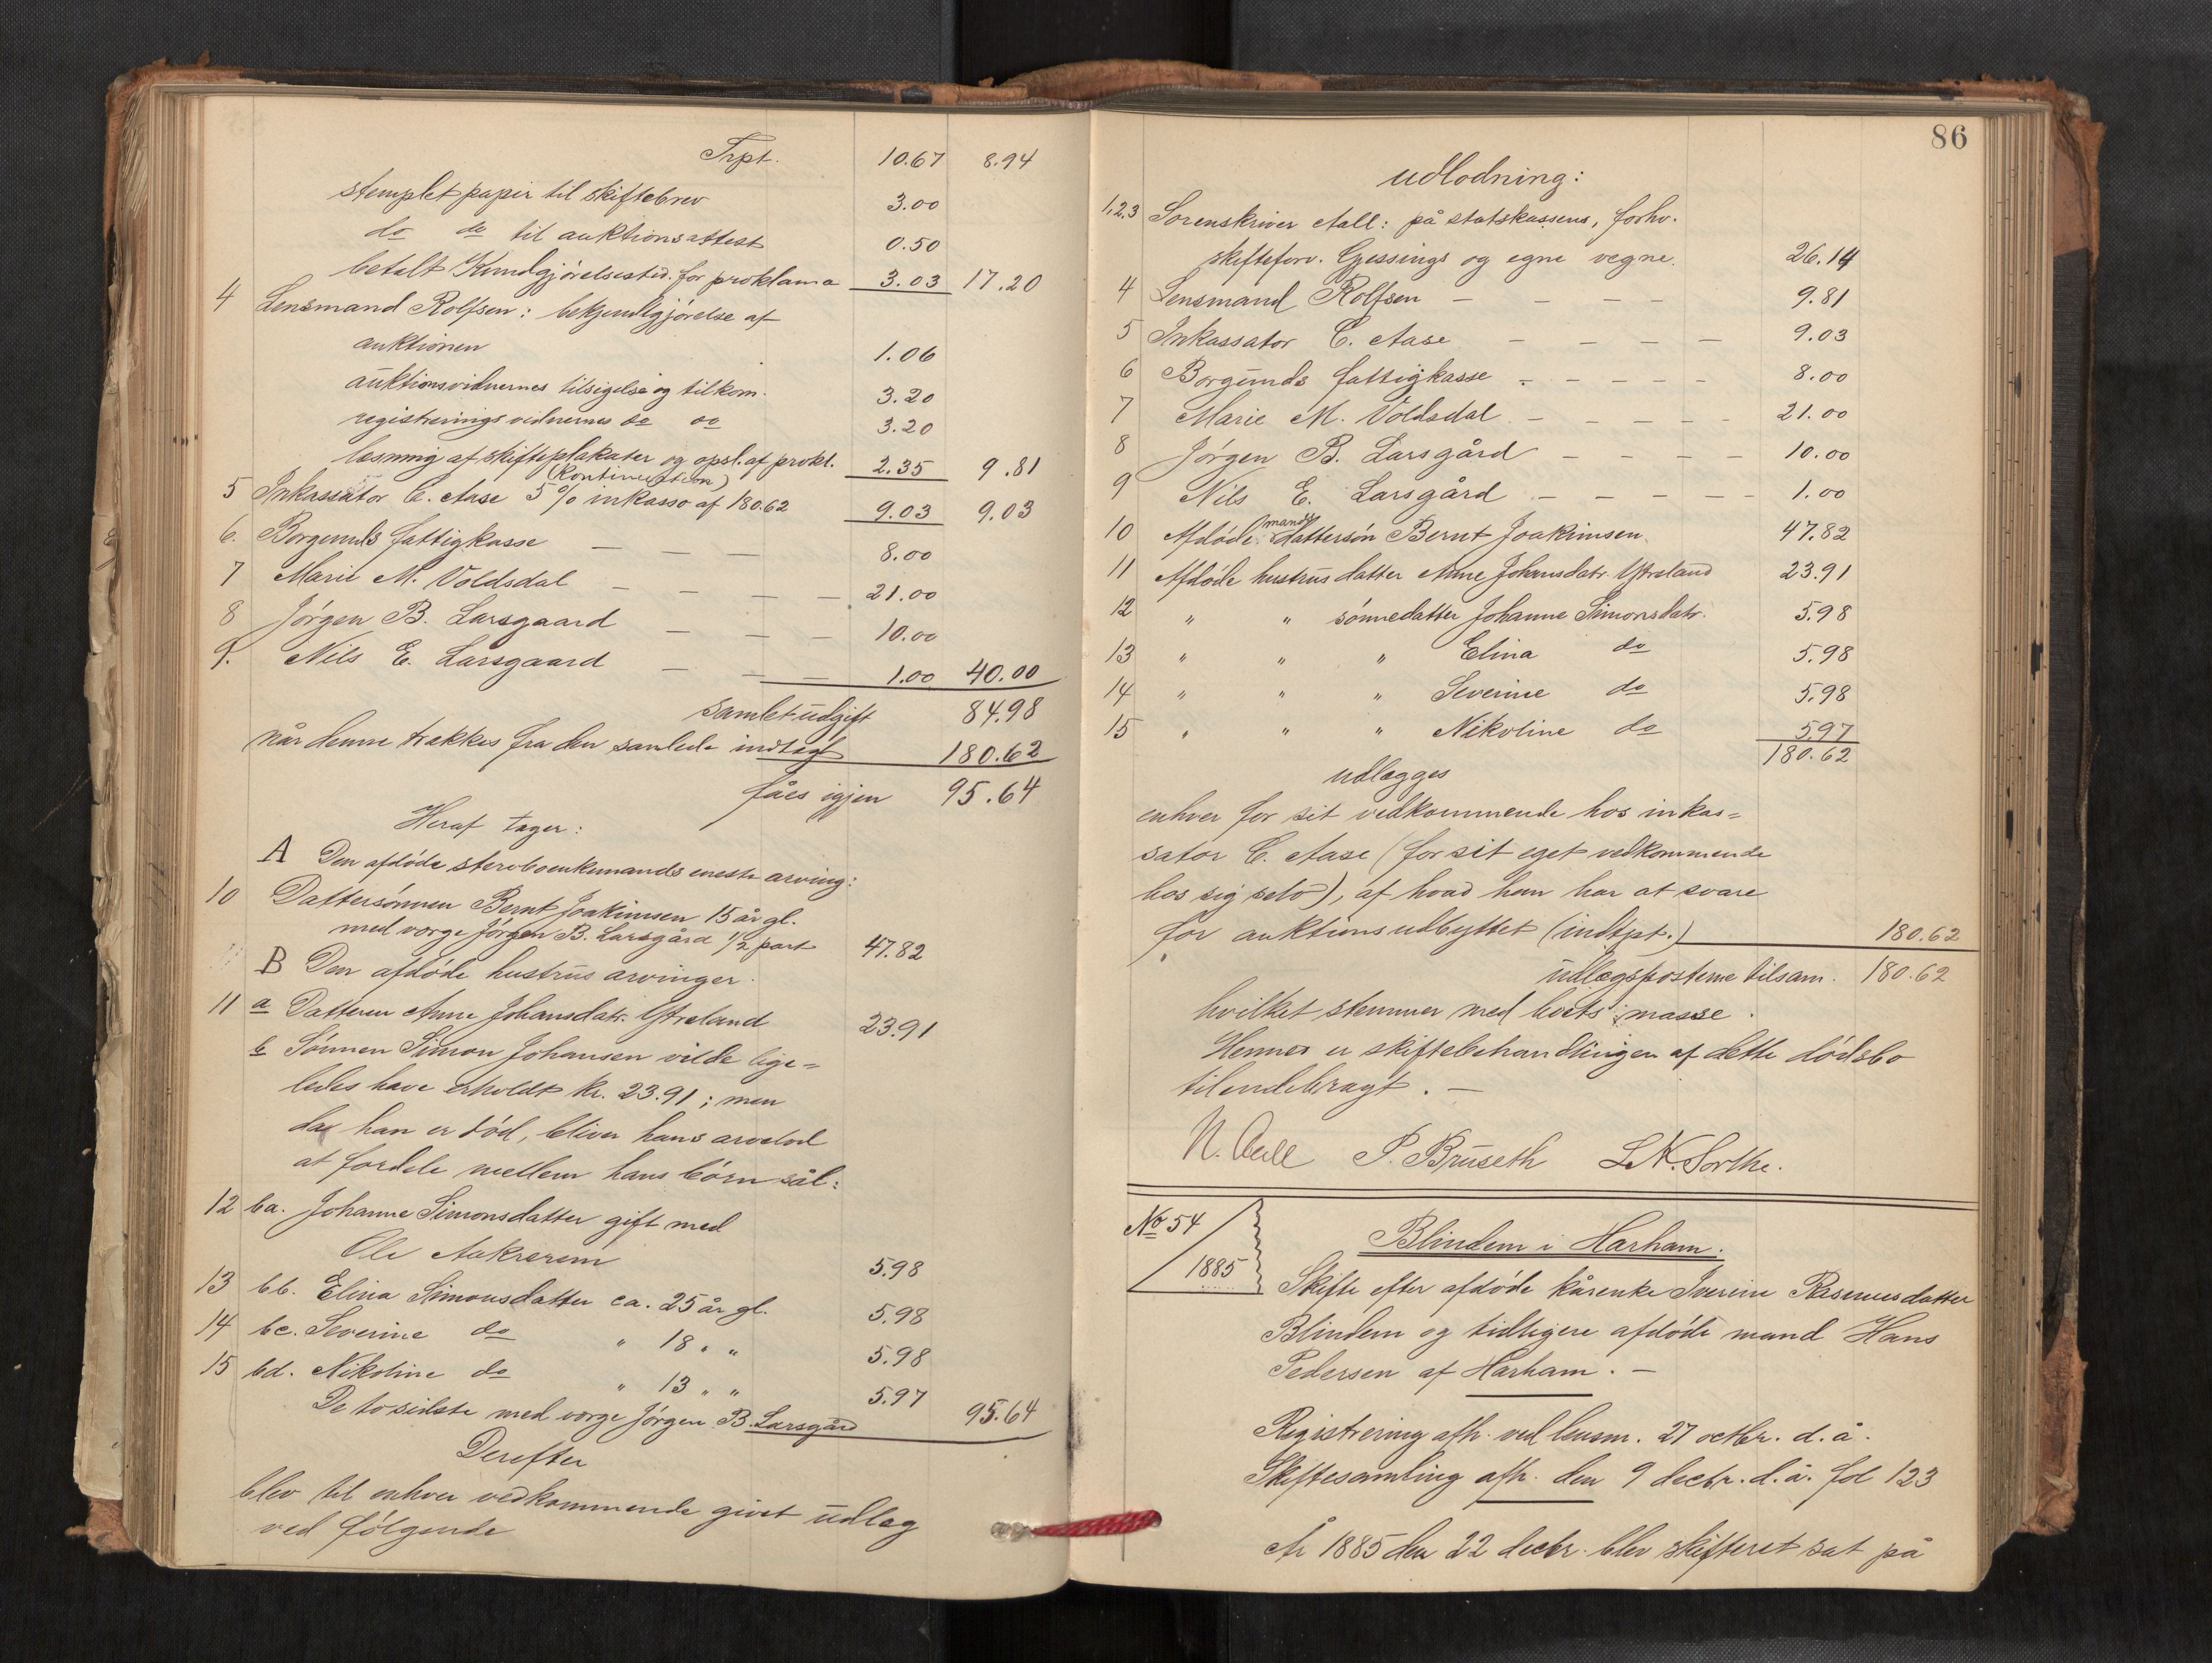 Trpt. 10.67 8.94
stemplet papir til skiftebrev 3.00
do do til auktionsattest 0.50
betalt Kundgjørelsestid. for proklama 3.03 17.20
4 Lensmand Rolfsen: bekjendtgjørelse af
auktionen 1.06
auktionsvidnernes tilsigelse og tilkom. 3.20
registreringsvidnernes do do 3.20
læsning af skifteplakater og opsl. af prokl. 2.35 9.81
(kontinuation)
5 Inkassator C. Aase 5% inkasso af 180.62 9.03 9.03
6. Borgunds fattigkasse — — — 8.00
7 Marie M. Voldsdal — — — — 21.00
8 Jørgen B. Larsgaard — — — 10.00
9. Nils E. Larsgaard — — — 1.00 40.00
samlet udgift 84.98
når denne trækkes fra den samlede indtægt 180.62
fåes igjen 95.64
Heraf tager:
A Den afdøde sterboenkemands eneste arving:
10 Dattersønnen Bernt Joakimsen 15 år gl.
med verge Jørgen B. Larsgård 1/2 part 47.82
B Den afdøde hustrus arvinger.
11 a Datteren Anne Johansdatr. Ytreland 23.91
b Sønnen Simon Johansen vilde lige=
ledes have erholdt kr. 23.91; men
da han er død, bliver hans arvelod
at fordele mellem hans børn sål:
12 ba. Johanne Simonsdatter gift med
Ole Aakrerem 5.98
13 bb. Elina Simonsdatter ca. 25 år gl. 5.98
14 bc. Severine do " 18 " " 5.98
15 bd. Nikoline do " 13 " " 5.97
De to sidste med verge Jørgen B. Larsgård 95.64
Derefter
blev til enhver vedkommende givet udlæg
ved følgende
86
udlodning:
1,2,3 Sorenskriver Aall: på statskassens, forhv.
skifteforv. Gjessings og egne vegne. 26.14
4 Lensmand Rolfsen — — — — 9.81
5 Inkassator C. Aase — — — — 9.03
6 Borgunds fattigkasse — — — — — 8.00
7 Marie M. Voldsdal — — — — — 21.00
8 Jørgen B. Larsgård — — — — 10.00
9 Nils E. Larsgård — — — — — 1.00
mands
10 Afdøde dattersøn Bernt Joakimsen 47.82
11 Afdøde hustrus datter Anne Johansdatr. Ytreland 23.91
12 " " sønnedatter Johanne Simonsdatr. 5.98
13 " " " Elina do 5.98
14 " " " Severine do 5.98
15 " " " Nikoline do 5.97
180.62
udlægges
enhver for sit vedkommende hos inkas=
sator C. Aase (for sit eget vedkommende
hos sig selv), af hvad han har at svare
for auktionsudbyttet (indtpt.) 180.62
udlægsposterne tilsam. 180.62
hvilket stemmer med boets masse.
Hermed er skiftebehandlingen af dette dødsbo
tilendebragt. —
N. Aall P. Bruseth L. N. Sorthe.
No 54
1885
Blindem i Harham.
Skifte efter afdøde kårenke Iverine Rasmusdatter
Blindem og tidligere afdøde mand Hans
Pedersen af Harham. —
Registrering afh. ved lensm. 27 octbr. d. å.
Skiftesamling afh. den 9 decbr. d. å. fol 123
År 1885 den 22 decbr. blev skifteret sat på